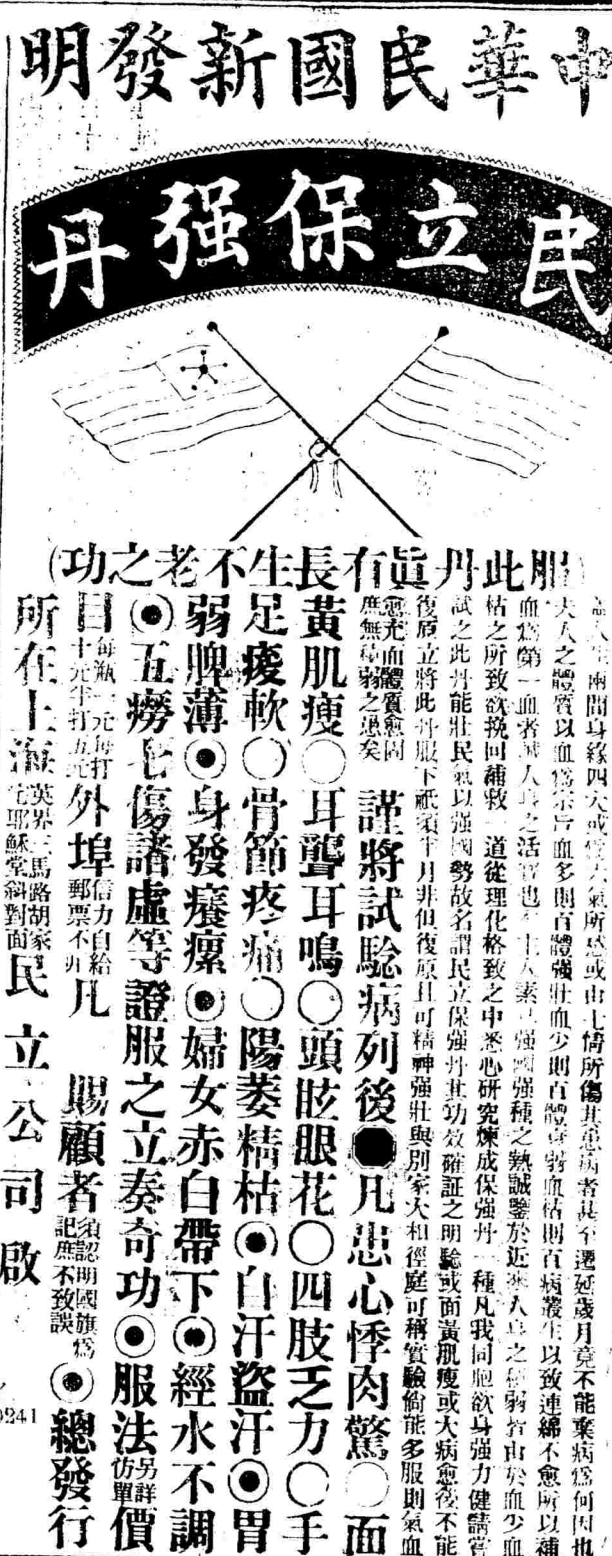 中華民國新發明
民立保强丹
(服此丹眞有長生不老之功)
人生兩間身緣四大或爲六氣所惑或由七情所傷其患病者甚至遷延歲月竟不能棄病爲何因也
夫人之體質以血爲宗旨血多則百體强壯血少則百體身弱血枯則百病叢生以致連綿不愈所以補
血爲第一血者誠人身之活寶也主人素具强國强種之熱誠鑒於近來人身之輭弱皆由於血少血
枯之所致欲挽回補救 道從理化格致之中悉心研究煉成保强丹一種凡我同胞欲身强力健請嘗
試之此丹能壯民氣以强國勢故名謂民立保强丹其功效確証之明騐或面黃肌瘦或大病愈後不能
復原立將此丹服下祇須半月非但復原且可精神强壯與別家大相徑庭可稱質驗倘能多服則氣血
愈充血體質愈固
庶無積弱之患矣
謹將試騐病列後 凡患心悸肉驚○面
黃肌瘦○耳聾耳鳴○頭眩眼花○四肢乏力○手
足痠軟○骨節疼痛○陽萎精枯◉自汗盜汗◉胃
弱脾薄◉身發癢瘰◉婦女赤白帶下◉經水不調
◉五癆七傷諸虛等證服之立奏奇功◉服法另詳仿單價
目每瓶一元每打十元半打五元外埠信力自給郵票不用凡 賜顧者須認明國旗爲記庶不致誤◉總發行
所在上海英界三馬路胡家宅耶穌堂斜對面民立公司啟
0241